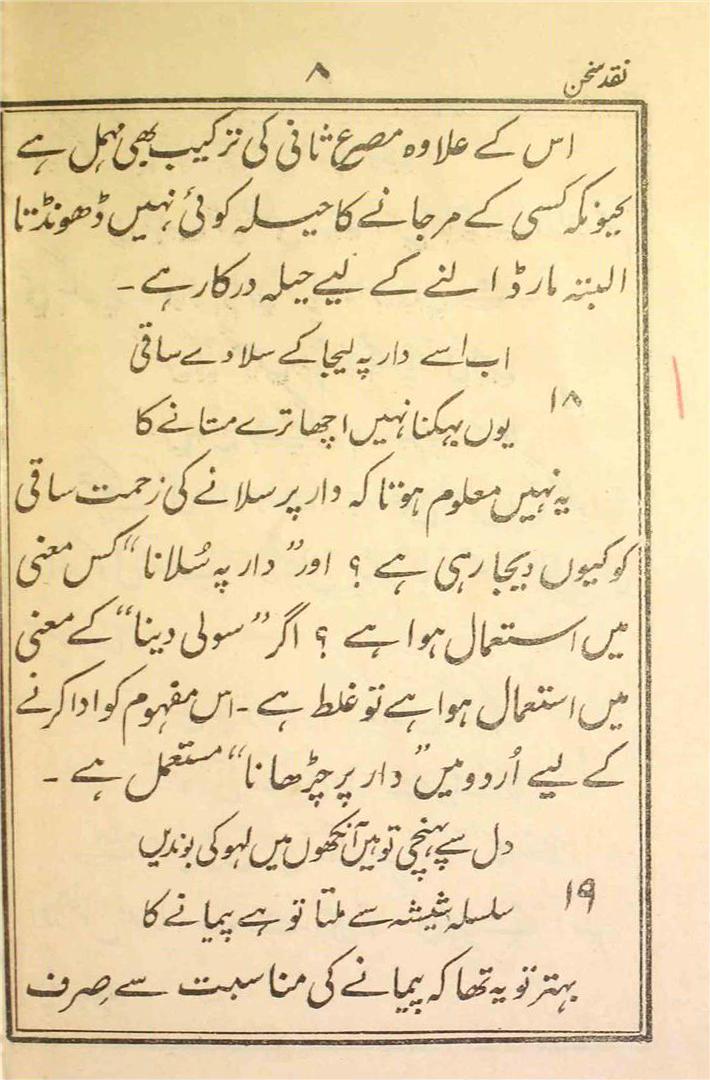 نقد سخن
۸
اس کے علاوہ مصرع ثانی کی ترکیب بھی مہمل ہے
کیونکہ کسی کے مرجانے کا حیلہ کوئی نہیں ڈھونڈتا
البتہ مار ڈالنے کے لیے حیلہ درکار ہے ۔
اب اسے دار پہ لیجا کے سلا دے ساقی
۱۸
یوں بہکنا نہیں اچھا ترے متانے کا
یہ نہیں معلوم ہوتا کہ دار پر سلانے کی زحمت ساقی
کو کیوں دیجا رہی ہے ؟ اور ”دار پہ سُلانا“ کس معنی
میں استعمال ہوا ہے ؟ اگر ”سولی دینا“ کے معنی
میں استعمال ہوا ہے تو غلط ہے ۔ اس مفہوم کو ادا کرنے
کے لیے اُردو میں ”دار پر چڑھانا“ مستعمل ہے ۔
دل سے پہنچی تو ہیں آنکھوں میں لہو کی بوندیں
۱۹
سلسلہ شیشہ سے ملتا تو ہے پیمانے کا
بہتر تو یہ تھا کہ پیمانے کی مناسبت سے صرف